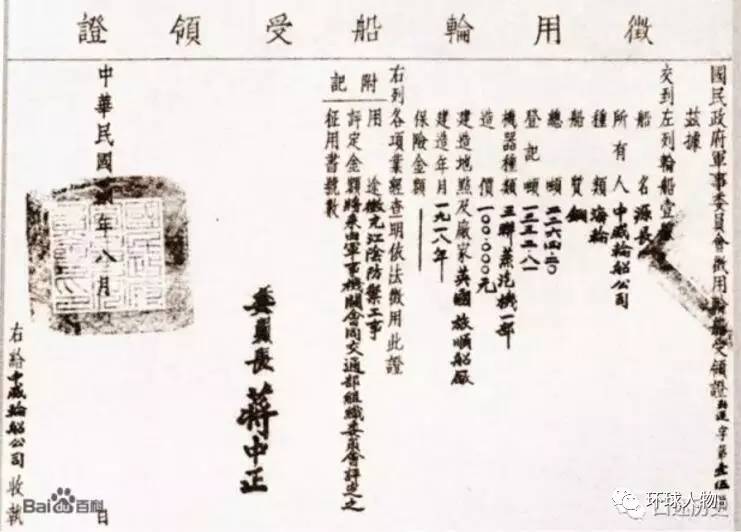 徵用輪船受領證
國民政府軍事委員會徵用輪船受領證 字第
茲據
交到左列輪船壹
船名 源長
所有人 中威輪船公司
種類 海輪
船質 鋼
總噸
登記噸 一三五二·八一
機器種類 三聯蒸汽機一部
造價 一〇〇·〇〇〇元
建造地點及廠家 英國旅順船廠
建造年月 一九一八年
保險金額
右列各項業經查明依法徵用此證
附記
用途 徵充江陰防禦工事
評定金額 將來由軍事機關會同交通部組織委員會評定之
徵用書號數
委員長 蔣中正
中華民國 年八月 日
右給中威輪船公司收執
Bai百科
环球人物